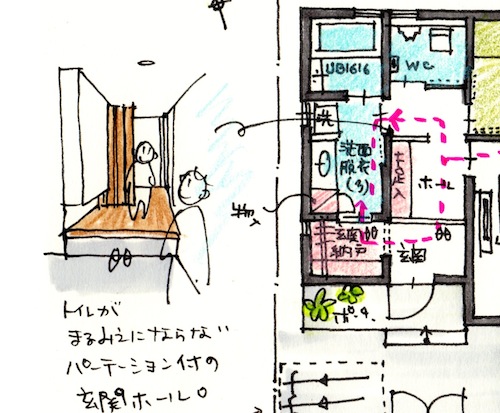 トイレが
まるみえにならない
パーテーション付の
玄関ホール。
UB1616
WC
洗
洗面
脱衣
(3)
ホール
物入
玄関
納戸
玄関